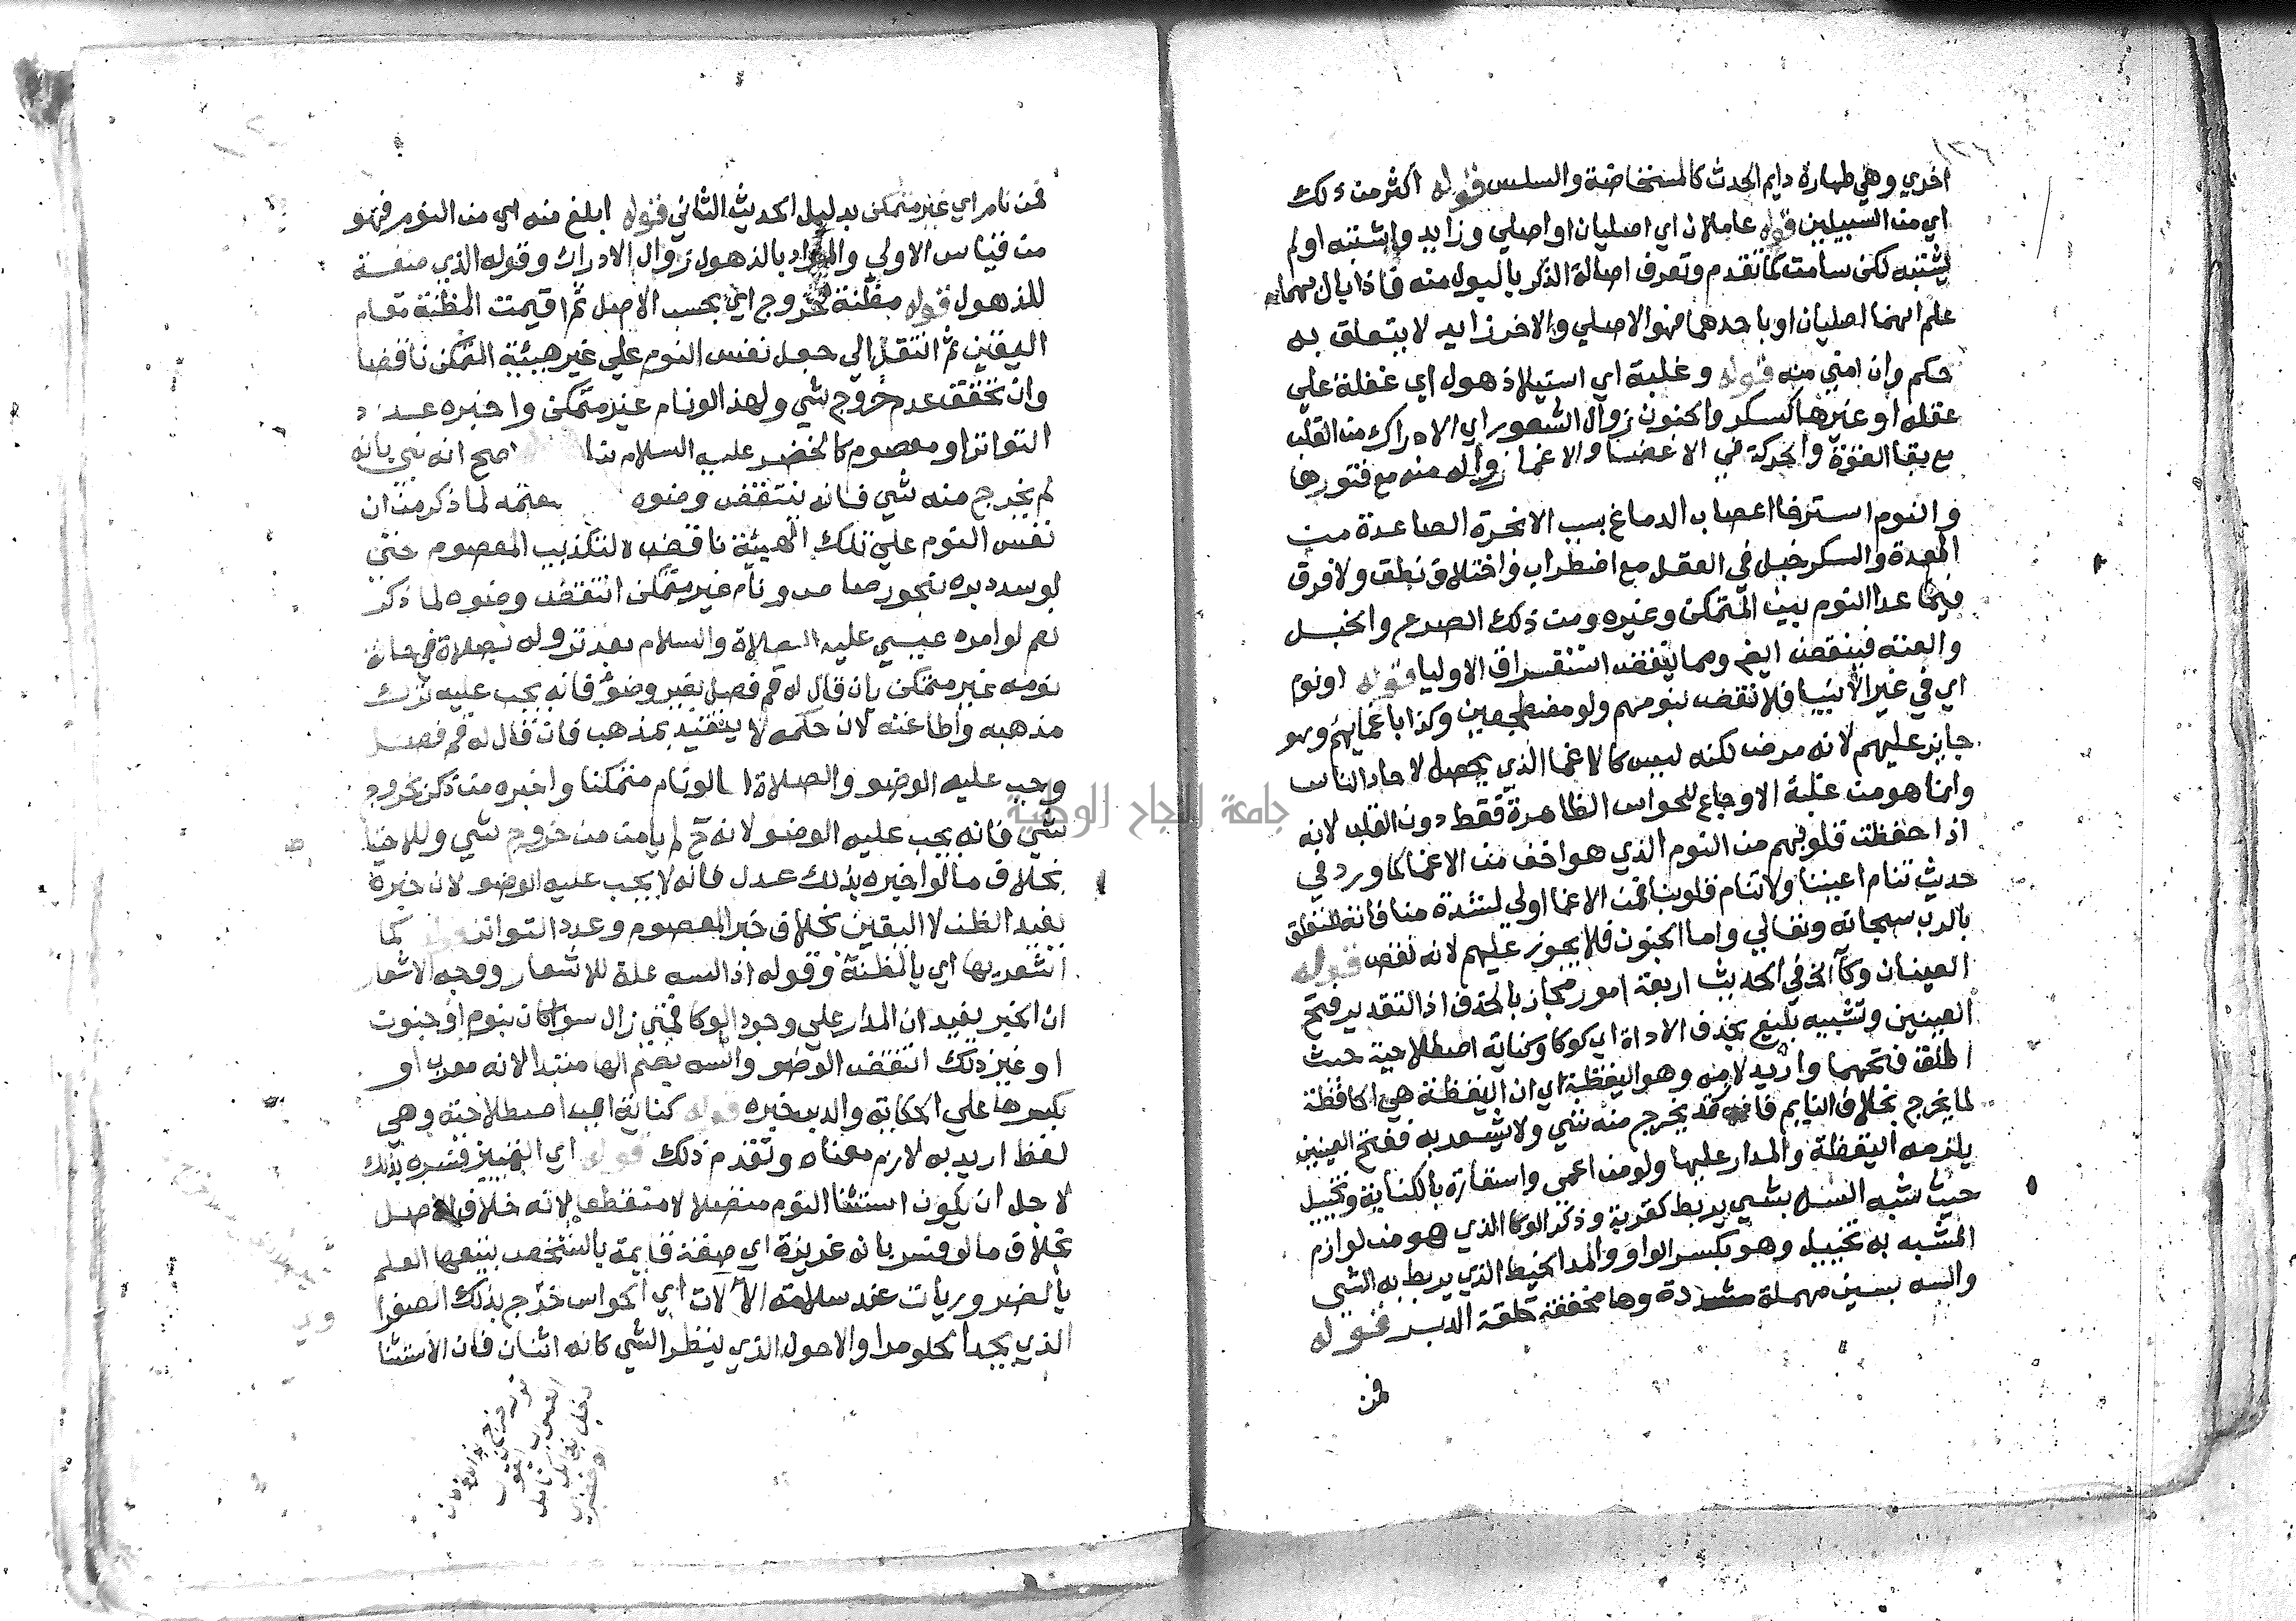 اخري وهي طهارة دايم الحدث كالمستحاضة والسلس قوله اكثر من ذلك
اي من السبيلين قوله عاملان اي اصليان او اصلي وزايد واشتبه او لم
يشتبه لكن سامت كما تقدم وتعرف اصالة الذكر بالبول منه فاذا بال بهما
علم انهما اصليان او باحدهما فهو الاصلي والاخر زايد لا يتعلق به
حكم وان امني منه قوله وغلبة اي استيلا ذهول اي غفلة علي
عقله او غيرها كسكر والجنون زوال الشعور اي الادراك من القلب
مع بقا القوة والحركة في الاعضا والاغما زواله منه مع فتورها
والنوم استرخا اعصاب الدماغ بسبب الابخرة الصاعدة من
المعدة والسكر خبل في العقل مع اضطراب واختلاق نطق ولا فرق
فيما عدا النوم بين المتمكن وغيره ومن ذلك الصرع والخبل
والعته فينقض ايض ومما ينقض استغراق الاوليا قوله او نوم
اي في غير الانبيا فلا نقض بنومهم ولو مضطجعين وكذا باغمايهم وهو
جايز عليهم لانه مرض لكنه ليس كالاغما الذي يحصل لاحاد الناس
وانما هو من غلبة الاوجاع للحواس الظاهرة فقط دون القلب لانه
اذا حفظت قلوبهم من النوم الذي هو اخف من الاغما كما ورد في
حديث تنام اعيننا ولا تنام قلوبنا فمن الاغما اولي لشدة منافاته للتعلق
بالرب سبحانه وتعالي واما الجنون فلا يجوز عليهم لانه نقص قوله
العينان وكآ الخ في الحديث اربعة امور مجاز بالحذف اذ التقدير فتح
العينين وتشبيه بليغ بحذف الاداة اي كوكا وكناية اصطلاحية حيث
اطلق فتحهما واريد لازمه وهو اليقظة اي ان اليقظة هي الحافظة
لما يخرج بخلاف النايم فانه قد يخرج منه شي ولا يشعر به ففتح العينين
يلزمه اليقظة والمدار عليها ولو من اعمي واستعارة بالكناية وتخييل
حيث شبه السه بشي يربط كقربة وذكر الوكا الذي هو من لوازم
المشبه به تخييل وهو بكسر الواو والمد الخيط الذي يربط به الشي
والسه بسين مهملة مشددة وها مخففة حلقة الدبر قوله
فمن
فمن نام اي غير متمكن بدليل الحديث الثاني قوله ابلغ منه اي من النوم فهو
من قياس الاولي والمراد بالذهول زوال الادراك وقوله الذي صفة
للذهول قوله مظنة لخروج اي بحسب الاصل ثم اقيمت المظنة مقام
اليقين ثم انتقل الي جعل نفس النوم علي غير هيئة التمكن ناقضا
وان تحقق عدم خروج شي ولهذا لو نام غير متمكن واخبره عدد
التواتر او معصوم كالخضر عليه السلام صح انه نبي بانه
لم يخرج منه شي فانه ينتقض وضوه لما ذكر من ان
نفس النوم علي تلك الهيئة ناقض لا لتكذيب المعصوم حتي
لو سد دبره بنحو رصاص ونام غير متمكن انتقض وضوه لما ذكر
نعم لو امره عيسي عليه الصلاة والسلام بعد نزوله بصلاة في حالة
نومه غير متمكن بان قال له قم فصل بغير وضو فانه يجب عليه ترك
مذهبه واطاعته لان حكمه لا يتقيد بمذهب فان قال له قم فصل
وجب عليه الوضو والصلاة لو نام متمكنا واخبره من ذكر بخروج
شي فانه يجب عليه الوضو لانه ح لم يامن من خروج شي
بخلاف ما لو اخبره بذلك عدل فانه لا يجب عليه الوضو لان خبره
يفيد الظن لا اليقين بخلاف خبر المعصوم وعدد التواتر قوله كما
اشعر بها اي بالمظنة وقوله اذ السه علة للاشعار ووجه الاشعار
ان الخبر يفيد ان المدار علي وجود الوكا فمتي زال سوا كان بنوم او جنون
او غير ذلك انتقض الوضو والسه بضم الها مبتدا لانه معرب او
بكسرها علي الحكاية والدبر خبره قوله كناية اي اصطلاحية وهي
لفظ اريد به لازم معناه وتقدم ذلك قوله اي التمييز فسره بذلك
لاجل ان يكون استثنا النوم متصلا لا منقطعا لانه خلاف الاصل
بخلاف ما لو فسر بانه غريزة اي صفة قايمة بالشخص يتبعها العلم
بالضروريات عند سلامة الآلات اي الحواس خرج بذلك الصفرا
الذي يجد الحلو مرا والاحول الذي ينظر الشي كانه اثنان فان الاستثنا